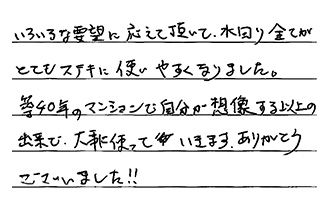 いろいろな要望に応えて頂いて、水回り全てが
とてもステキに使いやすくなりました。
築40年のマンションで自分が想像する以上の
出来で、大事に使っていきます。ありがとう
ございました!!